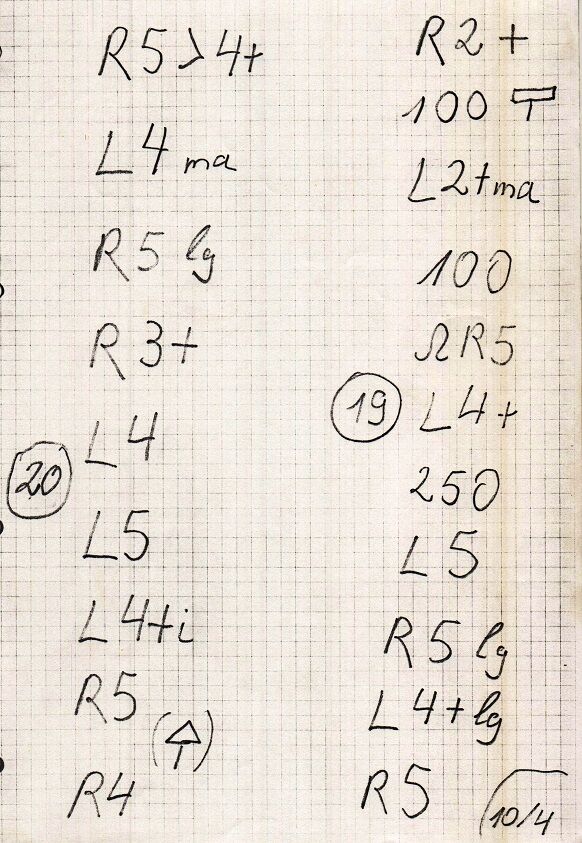 R5>4+
L4 ma
R5 lg
R3+
L4
20
L5
L4+i
R5
R4
R2+
100
L2+ma
100
ΩR5
19 L4+
250
L5
R5 lg
L4+lg
R5
10/4